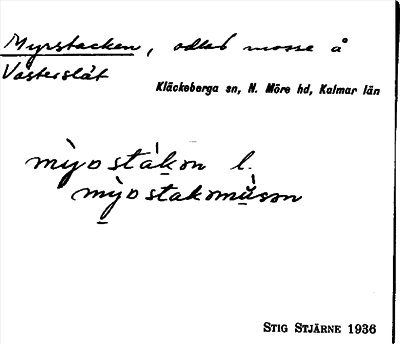 Myrstacken, odlad mosse å
Västerslät
Kläckeberga sn, N. Möre hd, Kalmar län
mỳosták̲on l.
m̲ỳostakomù̲son
STIG STJÄRNE 1936